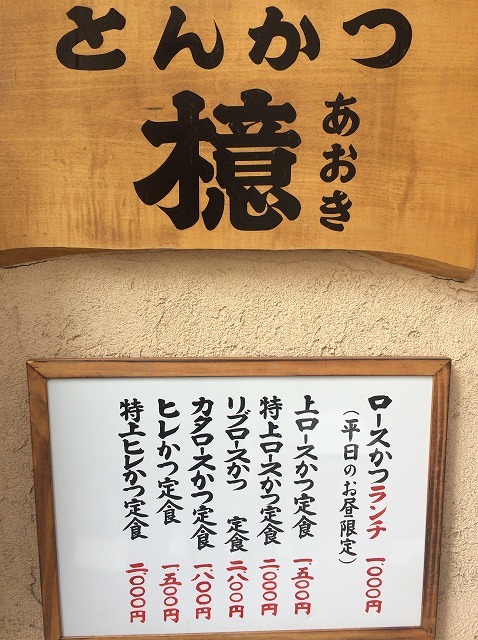 とんかつ
檍
あおき
ロースかつランチ 一、〇〇〇円
(平日のお昼限定)
上ロースかつ定食 一、五〇〇円
特上ロースかつ定食 二、〇〇〇円
リブロースかつ 定食 二、八〇〇円
カタロースかつ定食 一、八〇〇円
ヒレかつ定食 一、五〇〇円
特上ヒレかつ定食 二、〇〇〇円